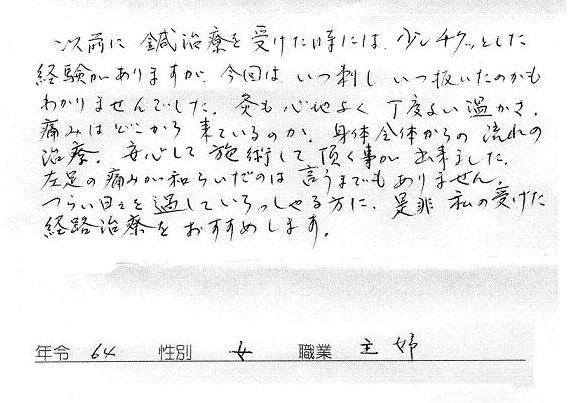 以前に 鍼治療を受けた時には、少しチクッとした
経験がありますが、今回は いつ刺し いつ抜いたのかも
わかりませんでした。灸も心地よく 丁度よい温かさ。
痛みはどこから 来ているのか、身体全体からの 流れの
治療。安心して 施術して 頂く事が 出来ました。
左足の痛みが和らいだのは 言うまでもありません。
つらい日々を過していらっしゃる方に、是非 私の受けた
経路治療をおすすめします。
年令 64 性別 女 職業 主婦